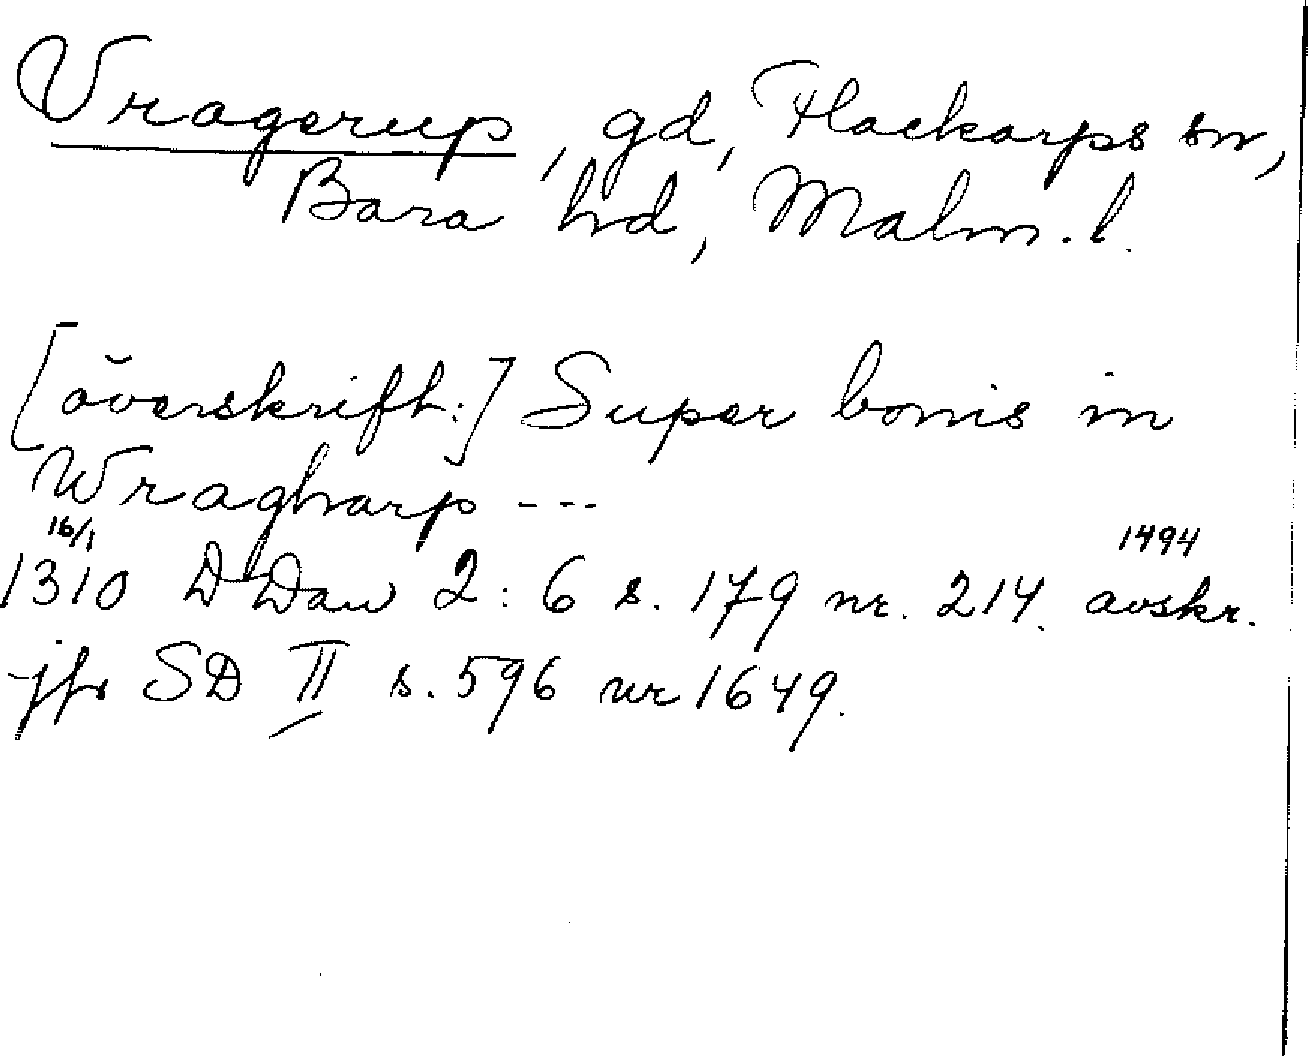 Vragerup, gd, Flackarps sn,
Bara hd, Malm. l.
[överskrift:] Super bonis in
Wragharp ---
16/1 1494
1310 DDan 2:6 s. 179 nr. 214. avskr.
jfr SD II s. 596 nr 1649.